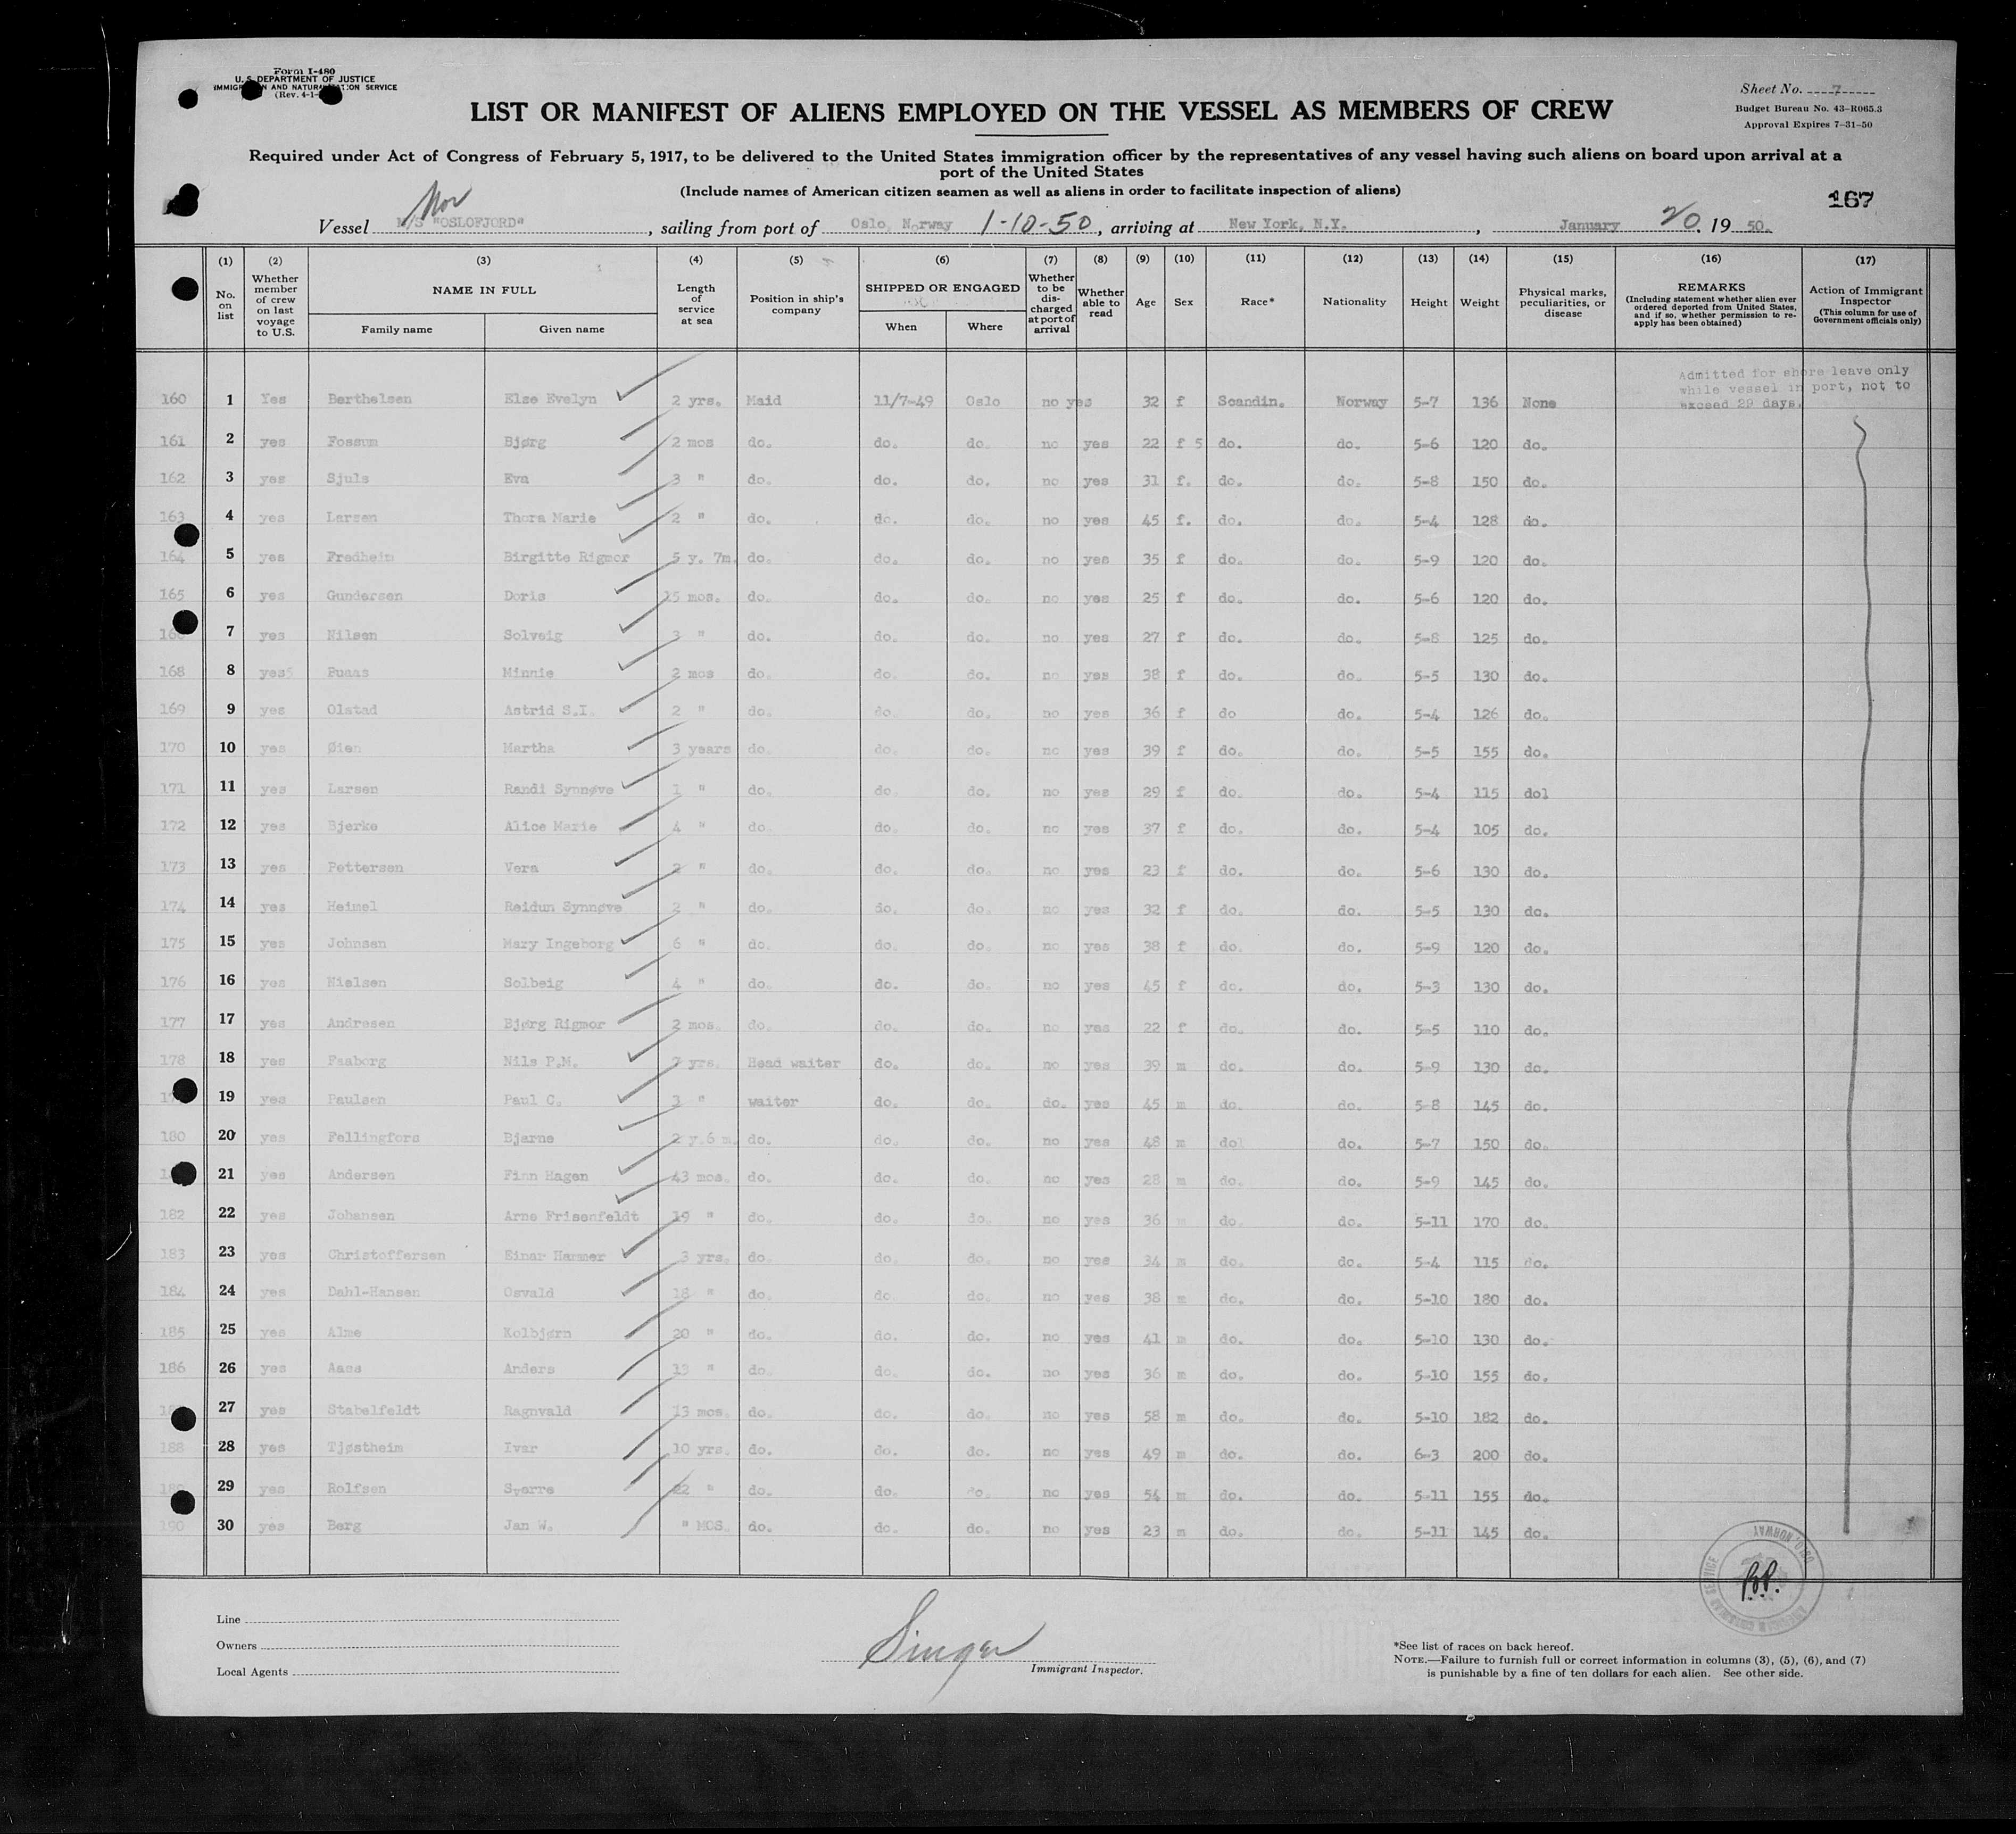 Form I-480
U. S. DEPARTMENT OF JUSTICE
IMMIGRATION AND NATURALIZATION SERVICE
(Rev. 4-1-
Sheet No. 7
Budget Bureau No. 43-R065.3
Approval Expires 7-31-50
LIST OR MANIFEST OF ALIENS EMPLOYED ON THE VESSEL AS MEMBERS OF CREW
Required under Act of Congress of February 5, 1917, to be delivered to the United States immigration officer by the representatives of any vessel having such aliens on board upon arrival at a
port of the United States
(Include names of American citizen seamen as well as aliens in order to facilitate inspection of aliens)
167
Nor
Vessel M/S "OSLOFJORD", sailing from port of Oslo, Norway 1-10-50, arriving at New York, N.Y., January 20. 19 50.
(1) (2) (3) (4) (5) (6) (7) (8) (9) (10) (11) (12) (13) (14) (15) (16) (17)
No. on list
Whether member of crew on last voyage to U.S.
NAME IN FULL
Family name
Given name
Length of service at sea
Position in ship's company
SHIPPED OR ENGAGED
When
Where
Whether to be discharged at port of arrival
Whether able to read
Age
Sex
Race*
Nationality
Height
Weight
Physical marks, peculiarities, or disease
REMARKS
(Including statement whether alien ever ordered deported from United States, and if so, whether permission to re-apply has been obtained)
Action of Immigrant Inspector
(This column for use of Government officials only)
Admitted for shore leave only
while vessel in port, not to
exceed 29 days.
160 1 Yes Berthelsen Else Evelyn 2 yrs. Maid 11/7-49 Oslo no yes 32 f Scandin. Norway 5-7 136 None
161 2 yes Fossum Bjørg 2 mos do. do. do. no yes 22 f 5 do. do. 5-6 120 do.
162 3 yes Sjuls Eva 3 " do. do. do. no yes 31 f. do. do. 5-8 150 do.
163 4 yes Larsen Thora Marie 2 " do. do. do. no yes 45 f. do. do. 5-4 128 do.
164 5 yes Fredheim Birgitte Rigmor 5 y. 7m. do. do. do. no yes 35 f do. do. 5-9 120 do.
165 6 yes Gundersen Doris 15 mos. do. do. do. no yes 25 f do. do. 5-6 120 do.
7 yes Nilsen Solveig 3 " do. do. do. no yes 27 f do. do. 5-8 125 do.
168 8 yes5 Ruaas Minnie 2 mos do. do. do. no yes 38 f do. do. 5-5 130 do.
169 9 yes Olstad Astrid S.I. 2 " do. do. do. no yes 36 f do do. 5-4 126 do.
170 10 yes Øien Martha 3 years do. do. do. no yes 39 f do. do. 5-5 155 do.
171 11 yes Larsen Randi Synnøve 1 " do. do. do. no yes 29 f do. do. 5-4 115 dol
172 12 yes Bjerke Alice Marie 4 " do. do. do. no yes 37 f do. do. 5-4 105 do.
173 13 yes Pettersen Vera 2 " do. do. do. no yes 23 f do. do. 5-6 130 do.
174 14 yes Heimel Reidun Synnøve 2 " do. do. do. no yes 32 f do. do. 5-5 130 do.
175 15 yes Johnsen Mary Ingeborg 6 " do. do. do. no yes 38 f do. do. 5-9 120 do.
176 16 yes Nielsen Solbeig 4 " do. do. do. no yes 45 f do. do. 5-3 130 do.
177 17 yes Andresen Bjørg Rigmor 2 mos. do. do. do. no yes 22 f do. do. 5-5 110 do.
178 18 yes Faaborg Nils P.M. 7 yrs. Head waiter do. do. no yes 39 m do. do. 5-9 130 do.
19 yes Paulsen Paul C. 3 " waiter do. do. do. yes 45 m do. do. 5-8 145 do.
180 20 yes Fellingfors Bjarne 2 y.6 m. do. do. do. no yes 48 m dol do. 5-7 150 do.
21 yes Andersen Finn Hagen 43 mos. do. do. do. no yes 28 m do. do. 5-9 145 do.
182 22 yes Johansen Arne Frisenfeldt 19 " do. do. do. no yes 36 m do. do. 5-11 170 do.
183 23 yes Christoffersen Einar Hammer 3 yrs. do. do. do. no yes 34 m do. do. 5-4 115 do.
184 24 yes Dahl-Hansen Osvald 18 " do. do. do. no yes 38 m do. do. 5-10 180 do.
185 25 yes Alme Kolbjørn 20 " do. do. do. no yes 41 m do. do. 5-10 130 do.
186 26 yes Aass Anders 13 " do. do. do. no yes 36 m do. do. 5-10 155 do.
27 yes Stabelfeldt Ragnvald 13 mos. do. do. do. no yes 58 m do. do. 5-10 182 do.
188 28 yes Tjøstheim Ivar 10 yrs. do. do. do. no yes 49 m do. do. 6-3 200 do.
29 yes Rolfsen Sverre 22 " do. do. do. no yes 54 m do. do. 5-11 155 do.
190 30 yes Berg Jan W. " MOS. do. do. do. no yes 23 m do. do. 5-11 145 do.
AMERICAN CONSULAR SERVICE OSLO, NORWAY
Line
Owners
Local Agents
Singer
Immigrant Inspector.
*See list of races on back hereof.
NOTE.—Failure to furnish full or correct information in columns (3), (5), (6), and (7)
is punishable by a fine of ten dollars for each alien. See other side.